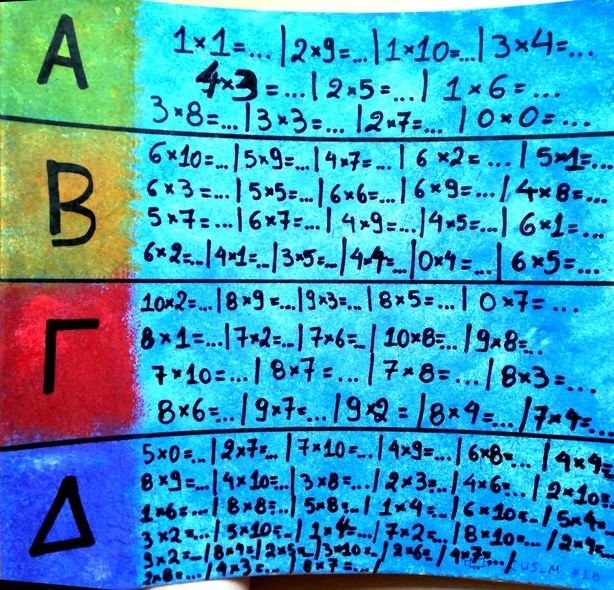 Α
1×1=...|2×9=...|1×10=...|3×4=...
4×3=...|2×5=...|1×6=...
3×8=...|3×3=...|2×7=...|0×0=...
Β
6×10=...|5×9=...|4×7=...|6×2=...|5×1=...
6×3=...|5×5=...|6×6=...|6×9=...|4×8=...
5×7=...|6×7=...|4×9=...|4×5=...|6×1=...
6×2=...|4×1=...|3×5=...|4×4...|0×4=...|6×5=...
Γ
10×2=...|8×9=...|9×3=...|8×5=...|0×7=...
8×1=...|7×2=...|7×6=...|10×8=...|9×8=...
7×10=...|8×7=...|7×8=...|8×3=...
8×6=...|9×7=...|9×2=|8×4=...|7×4=...
Δ
5×0=...|2×7=...|7×10=...|4×9=...|6×8=...|4×4=
8×9=...|4×10=...|3×8=...|2×3=...|4×6=...|2×10=
1×6=...|8×8=...|5×8=...|1×4=...|6×10=...|5×4=
3×2=...|5×10=..|1×4=...|7×2=...|8×10=...|2×4=
9×2=...|8×9=...|2×5=...|3×10=...|2×6=...|4×7=...|
2×8=...|4×3=...|6×7=...|
#18